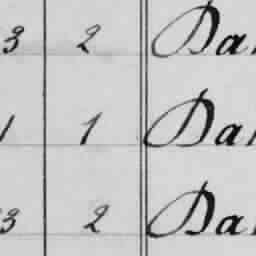 3 2 Dan
1 1 Dan
3 2 Dan